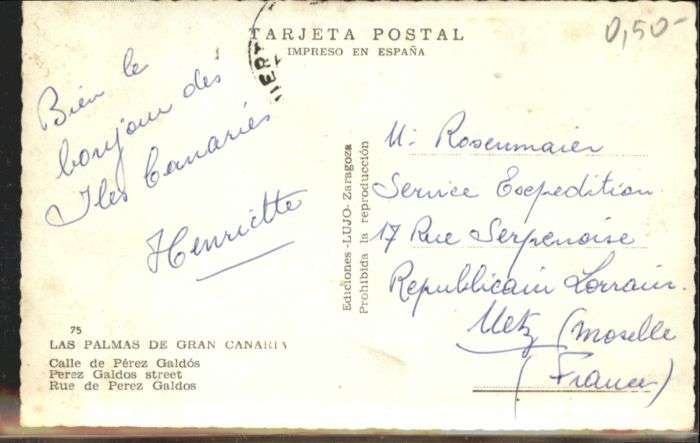 TARJETA POSTAL
IMPRESO EN ESPAÑA
0,50-
Bien le
bonjour des
Iles Canaries
Henriette
Ediciones -LUJO- Zaragoza
Prohibida la reproducción
M. Rosenmaier
Service Expedition
17 Rue Serpenoise
Republicain Lorrain
Metz (Moselle
(France)
75
LAS PALMAS DE GRAN CANARIA
Calle de Pérez Galdós
Perez Galdos street
Rue de Perez Galdos